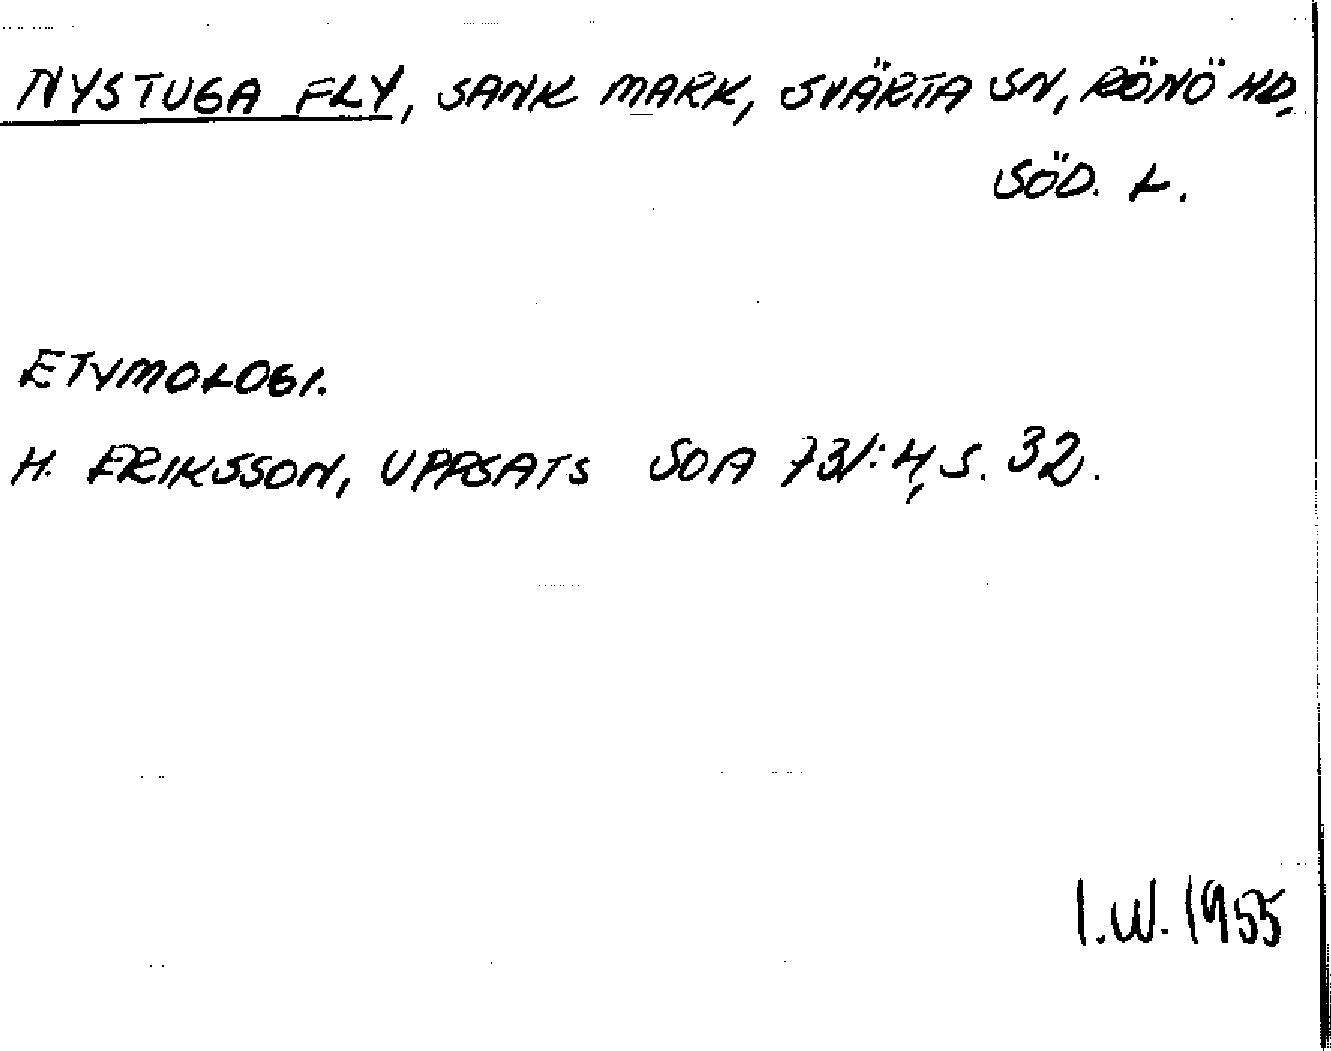 NYSTUGA FLY, SANK MARK, SVÄRTA SN, RÖNÖ HD,
SÖD. L.
ETYMOLOGI.
H. ERIKSSON, UPPSATS SOA 731:4, S. 32.
I.W. 1955